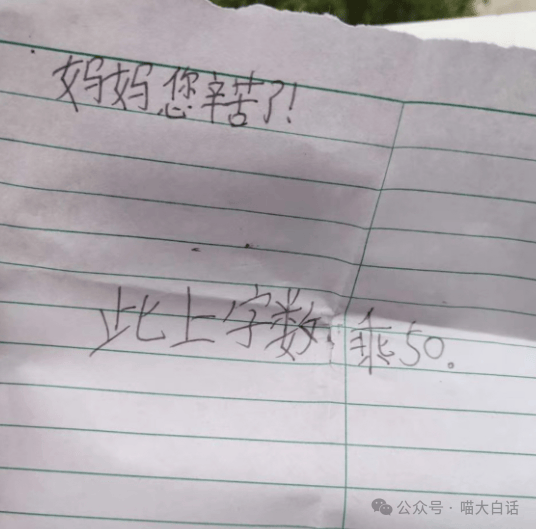 妈妈您辛苦了!
此上字数,乘50.
公众号·喵大白话